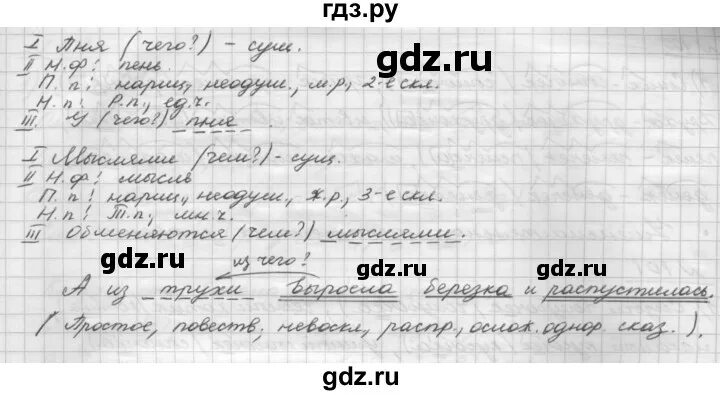 гдз.ру
I Пня (чего?) - сущ.
II Н.ф! пень.
П.п! нариц., неодуш., м.р., 2-е скл.
Н.п! Р.п., ед.ч.
III. У (чего?) пня
I Мыслями (чем?) - сущ.
II Н.ф! мысль
П.п! нариц., неодуш., ж.р., 3-е скл.
Н.п! Т.п., мн.ч.
III Обменяются (чем?) мыслями.
из чего?
А из трухи выросла березка и распустилась.
(Простое, повеств., невоскл., распр., ослож. однор. сказ.).
gdz.ru
gdz.ru
gdz.ru
gdz.ru